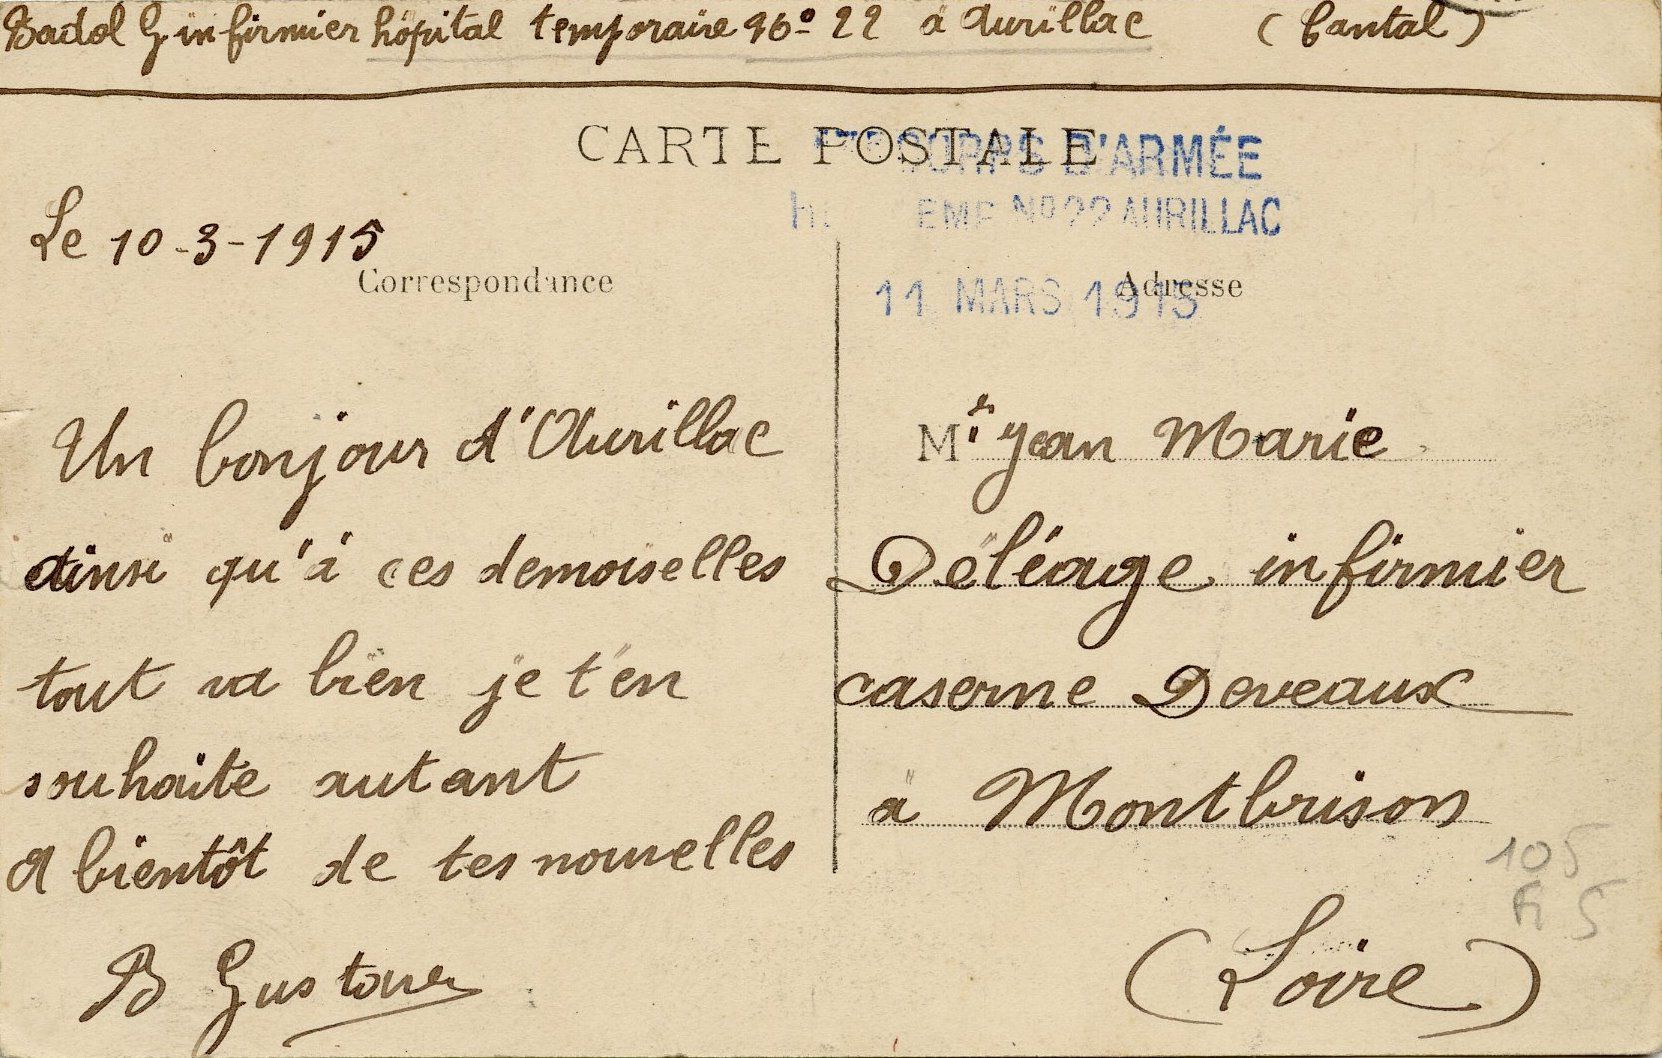 Badol G infirmier hôpital temporaire No 22 à Aurillac (Cantal)
CARTE POSTALE
CORPS D'ARMÉE
No 22 AURILLAC
Le 10-3-1915
Correspondance
Adresse
11 MARS 1915
Un bonjour d'Aurillac
ainsi qu'à ces demoiselles
tout va bien je t'en
souhaite autant
A bientôt de tes nouvelles
B Gustave
M Jean Marie
Déléage infirmier
caserne Deveaux
à Montbrison
(Loire)
105
Fi 5